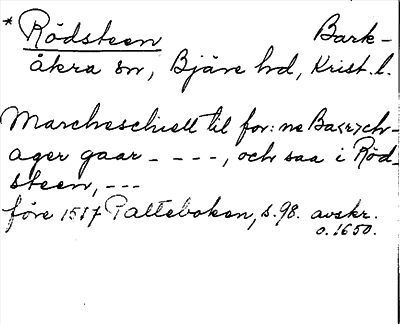 * Rödsteen Bark-
åkra sn, Bjäre hd, Krist. l.
Marcheschiell til for:ne Ba<r>ch-
ager gaar - - - -, och saa i Röd-
steen, - - -
före 1517 Palteboken, s. 98. avskr.
o. 1650.